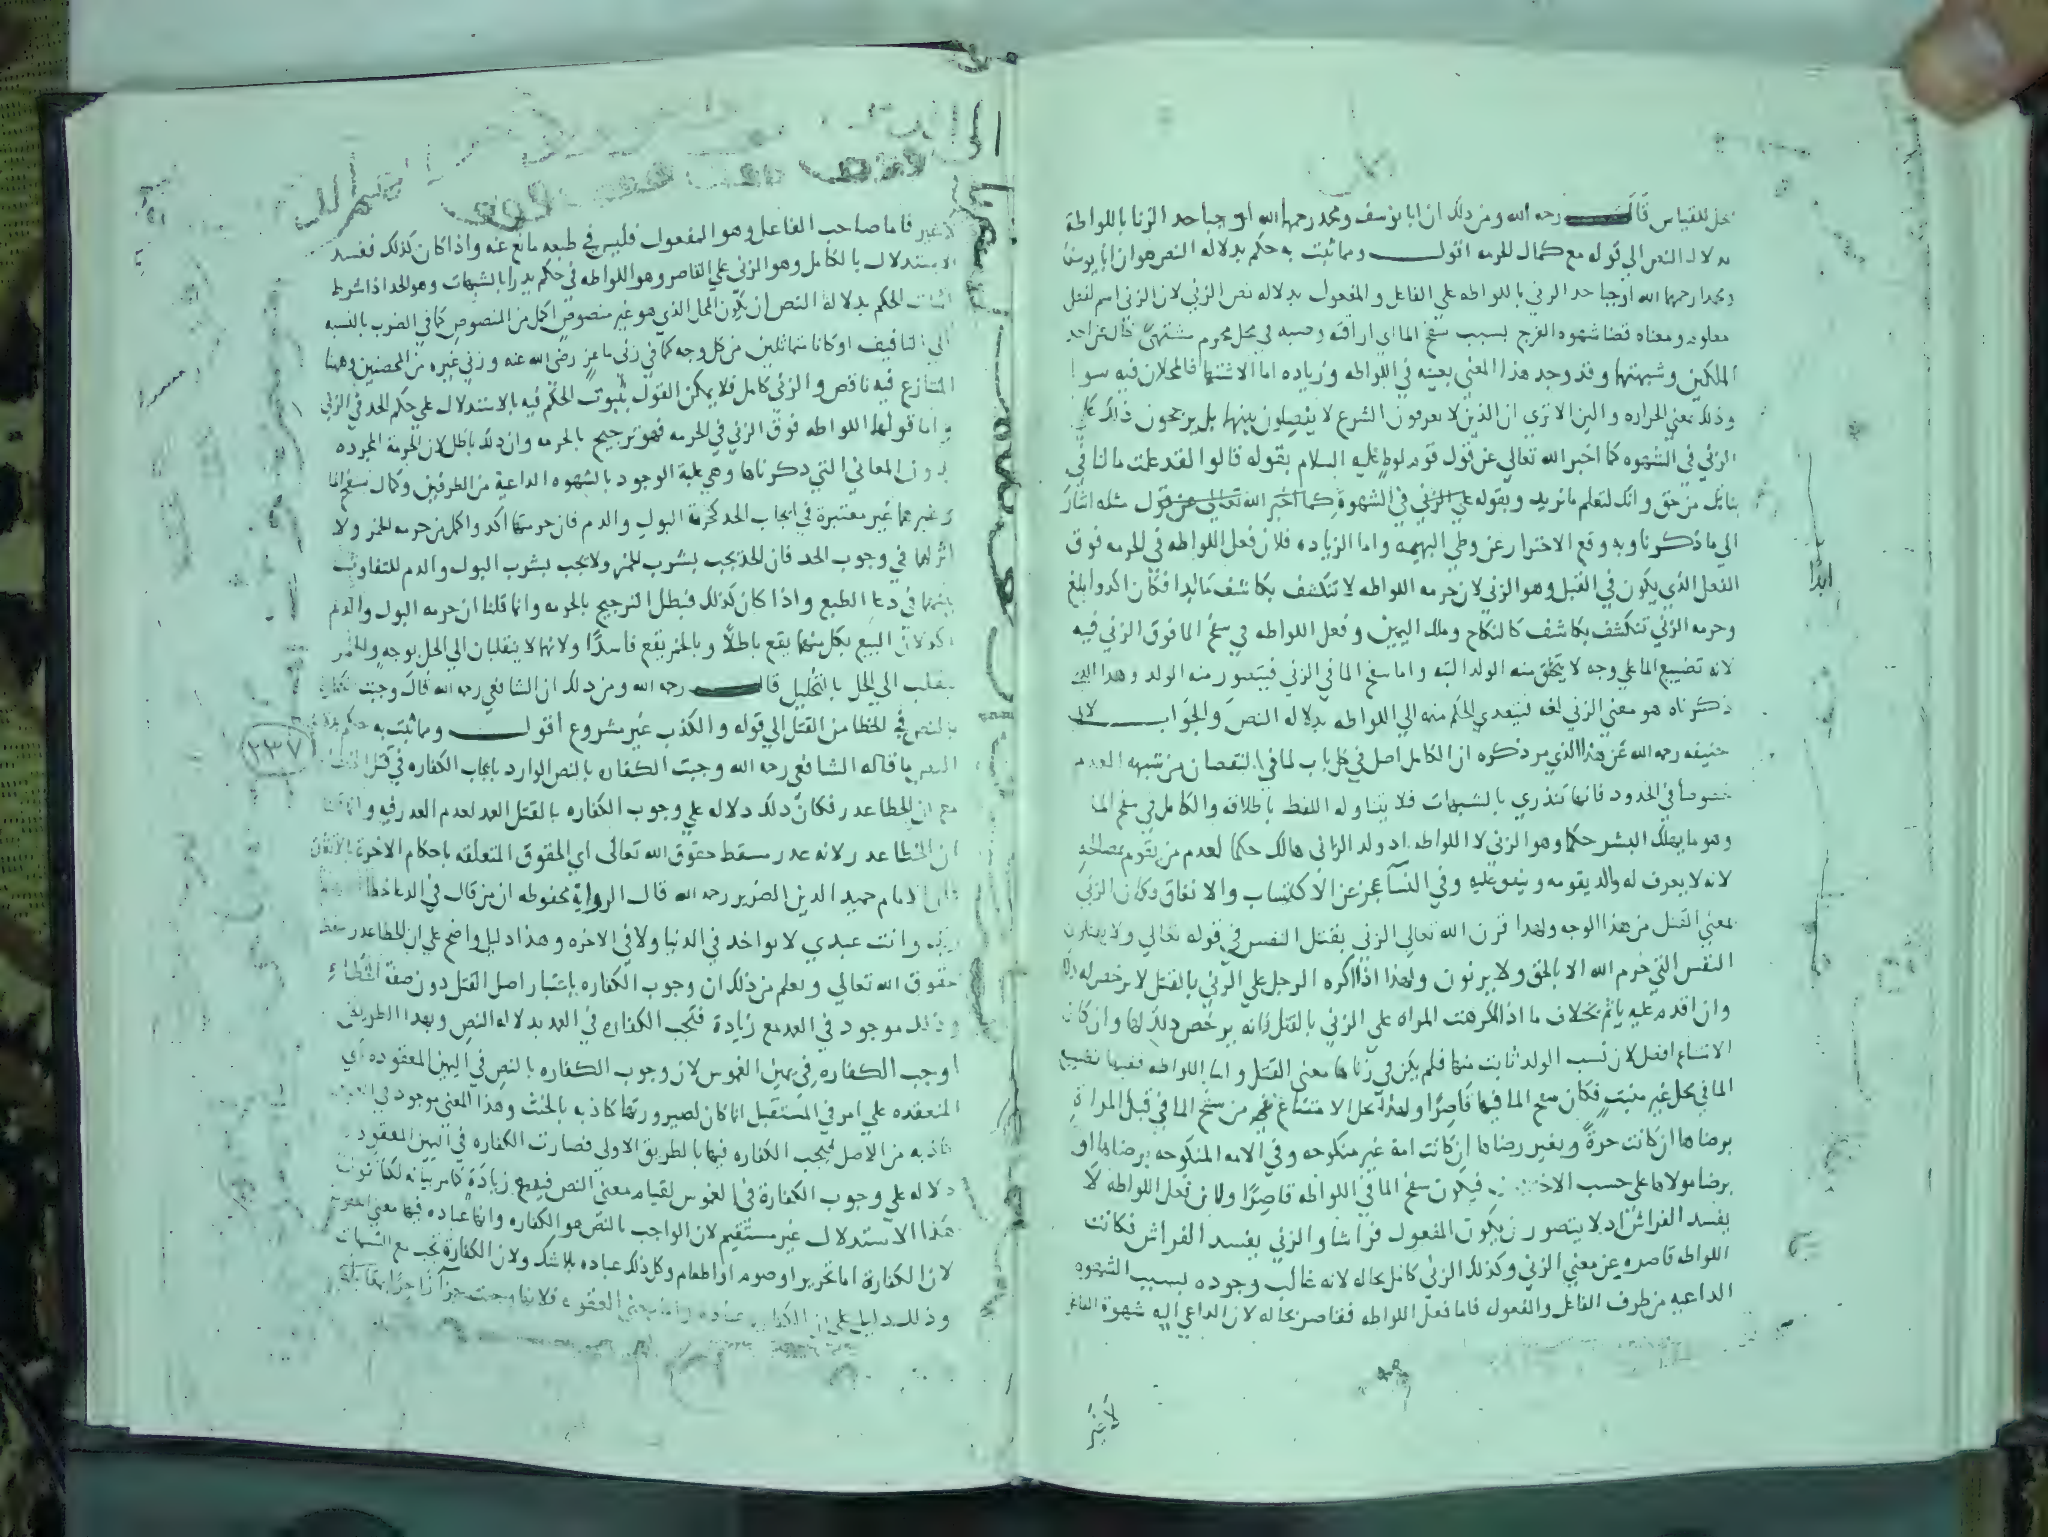 محل للقياس قال رحمه الله ومن ذلك ان ابا يوسف ومحمد رحمهما الله اوجبا حد الزنا باللواطة
بدلاله النص الى قوله مع كمال الحرمه اقول وما ثبت به حكم بدلاله النص هو ان ابا يوسف
ومحمدا رحمهما الله اوجبا حد الزني باللواطه علي الفاعل والمفعول بدلاله نص الزني لان الزني اسم لفعل
معلوم ومعناه قضا شهوه الفرج بسبب سفح الما اي اراقته وصبه في محل محرم مشتهيً خال عن احد
الملكين وشبهتها وقد وجد هذا المعني بعينه في اللواطه وزياده اما الاشتها فالمحلان فيه سوا
وذلك معني الحراره والين الا تري ان الذين لا يعرفون الشرع لا يفصلون بينهما بل يرجحون ذلك علي
الزني في الشهوه كما اخبر الله تعالي عن قول قوم لوط عليه السلام بقوله قالوا لقد علمت ما لنا في
بناتك من حق وانك لتعلم ما نريد وبقوله علي الزني في الشهوة كما اخبر الله تعالي عن قول مثله اشار
الي ما ذكرنا وبه وقع الاحتراز عن وطي البهيمه واما الزياده فلان فعل اللواطه في الحرمه فوق
الفعل الذي يكون في القبل وهو الزني لان حرمه اللواطه لا تنكشف بكاشف ما ابدا فكان اكد وابلغ
ابدًا
وحرمه الزني تنكشف بكاشف كالنكاح وملك اليمين وفعل اللواطه في سفح الما فوق الزني فيه
لانه تضييع الما علي وجه لا يتخلق منه الولد البته واما سفح الما في الزني فيتصور منه الولد وهذا الذي
ذكرناه هو معني الزني لغه فيتعدي الحكم منه الي اللواطه بدلاله النص والجواب لابي
حنيفه رحمه الله عن هذا الذي مر ذكره ان الكامل اصل في كل باب لما في النقصان من شبهه العدم
خصوصًا في الحدود فانها تندري بالشبهات فلا يتناوله اللفظ باطلاقه والكامل في سفح الما
وهو ما يهلك البشر حكما وهو الزني لا اللواطه اذ ولد الزاني هالك حكما لعدم من يقوم بمصالحه
لانه لا يعرف له والد يقومه وينفق عليه وفي النسا عجز عن الاكتساب والانفاق وكان الزني
بمعني القتل من هذا الوجه ولهذا قرن الله تعالي الزني بقتل النفس في قوله تعالي ولا يقتلون
النفس التي حرم الله الا بالحق ولا يزنون ولهذا اذا اكره الرجل علي الزني بالقتل لا يرخص له
وان اقدم عليه ياثم بخلاف ما اذا اكرهت المراه علي الزني بالقتل فانه يرخص ذلك لها وان كان
الامتناع افضل لان نسب الولد ثابت منها فلم يكن في زناها معني القتل واما اللواطه ففيها تضييع
الما في محل غير منبت فكان سفح الما فيها قاصرًا ولهذا يحل الامتناع من سفح الما في قبل المراة
برضاها ان كانت حرةً وبغير رضاها ان كانت امة غير منكوحه وفي الامه المنكوحه برضاها او
برضا مولاها علي حسب فيكون سفح الما في اللواطه قاصرًا ولان فعل اللواطه لا
يفسد الفراش اذ لا يتصور ان يكون المفعول فراشا والزني يفسد الفراش فكانت
اللواطه قاصره عن معني الزني وكذلك الزني كامل بحاله لانه غالب وجوده بسبب الشهوه
الداعيه من طرف الفاعل والمفعول فاما فعل اللواطه فقاصر بحاله لان الداعي اليه شهوة الفاعل
لا غير
لا غير فاما صاحب الفاعل وهو المفعول فليس في طبعه مانع عنه واذا كان كذلك فسد
الاستدلال بالكامل وهو الزني علي القاصر وهو اللواطه في حكم يدرا بالشبهات وهو الحد اذ اشرط
اثبات الحكم بدلالة النص ان يكون المحل الذي هو غير منصوص اكمل من المنصوص كما في الضرب بالنسبه
الي التافيف او كانا متماثلين من كل وجه كما في زني ماعز رضي الله عنه وزني غيره من المحصنين وههنا
المتنازع فيه ناقص والزني كامل فلا يمكن القول بثبوت الحكم فيه بالاستدلال علي حكم الحد في الزني
واما قولهما اللواطه فوق الزني في الحرمه فهو ترجيح بالحرمه وان ذلك باطل لان الحرمة المجرده
بدون المعاني التي ذكرناها وهي غلبة الوجود بالشهوه الداعية من الطرفين وكمال سفح الما
وغيرهما غير معتبرة في ايجاب الحد كحرمة البول والدم فان حرمتهما اكد واكمل من حرمه الخمر ولا
اثر لهما في وجوب الحد فان الحد يجب بشرب الخمر ولا يجب بشرب البول والدم للتفاوت
بينهما في دعا الطبع واذا كان كذلك فبطل الترجيح بالحرمه وانما قلنا ان حرمه البول والدم
اكد لان البيع بكل منهما يقع باطلًا وبالخمر يقع فاسدًا ولانهما لا ينقلبان الي الحل بوجه والخمر
ينقلب الي الحل بالتخليل قال رحمه الله ومن ذلك ان الشافعي رحمه الله قال وجبت
بالنص في الخطا من القتل الي قوله والكذب غير مشروع اقول وما ثبت به حكم
٢٣٧
النص ما قاله الشافعي رحمه الله وجبت الكفاره بالنص الوارد بايجاب الكفاره في قتل الخطا
مع ان الخطا عذر فكان ذلك دلاله علي وجوب الكفاره بالقتل العمد لعدم العذر فيه وانما قلنا
ان الخطا عذر لانه عذر مسقط حقوق الله تعالي اي الحقوق المتعلقه باحكام الاخرة بالاتفاق
الامام حميد الدين الضرير رحمه الله قال الرواية محفوظه ان من قال في الدعا خطا
وانت عبدي لا يواخذ في الدنيا ولا في الاخره وهذا دليل واضح علي ان الخطا عذر
حقوق الله تعالي ويعلم من ذلك ان وجوب الكفاره باعتبار اصل القتل دون صفة الخطاء
وذلك موجود في العمد مع زيادة فتجب الكفاره في العمد بدلاله النص وبهذا الطريق
اوجب الكفاره في يمين الغموس لان وجوب الكفاره بالنص في اليمين المعقوده اي
المنعقده علي امر في المستقبل انما كان لصيرورتها كاذبه بالحنث وهذا المعني موجود في
كاذبه من الاصل فتجب الكفاره فيها بالطريق الاولي فصارت الكفاره في اليمين المعقوده
دلاله علي وجوب الكفارة في الغموس لقيام معني النص فيها مع زيادة كما مر بيانه لكنا نقول
هذا الاستدلال غير مستقيم لان الواجب بالنص هو الكفاره وانها عباده فيها معني العقوبه
لان الكفارة اما تحرير او صوم او اطعام وكل ذلك عباده بلا شك ولان الكفارة تجب مع الشبهات
وذلك دليل علي ان الكفاره عباده واما معني العقوبه فلانها وجبت جزآ زاجرًا